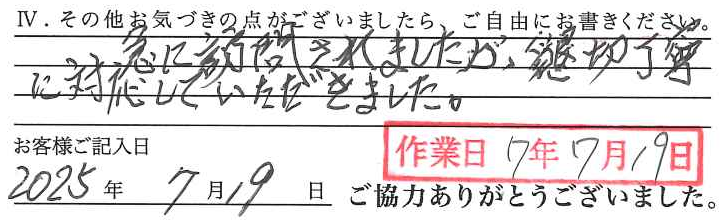 Ⅳ．その他お気づきの点がございましたら、ご自由にお書きください。
急に訪問されましたが、親切丁寧
に対応していただきました。
お客様ご記入日
作業日 7年7月19日
2025年 7月19日 ご協力ありがとうございました。